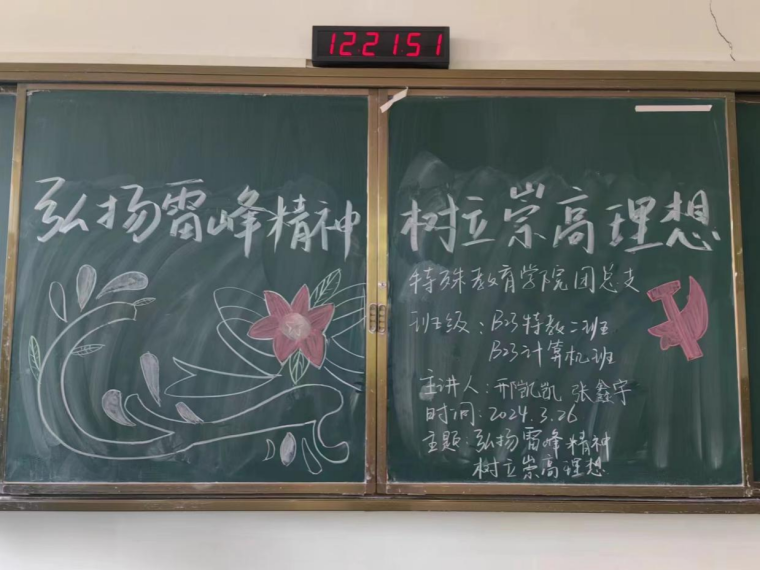 12:21:51
弘扬雷峰精神 树立崇高理想
特殊教育学院团总支
班级：B23特教二班
B23计算机班
主讲人：邢凯凯 张鑫宇
时间：2024.3.26
主题：弘扬雷峰精神
树立崇高理想